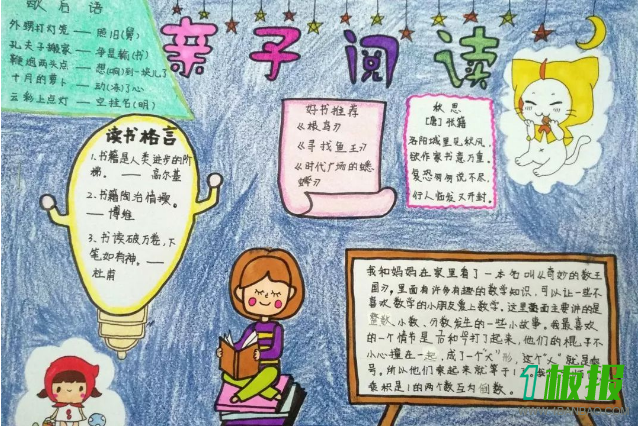 歇后语
外甥打灯笼 —— 照旧(舅)
孔夫子搬家 —— 净是输(书)
鞭炮两头点 —— 想(响)到一块儿了
十月的萝卜 —— 动(冻)了心
云彩上点灯 —— 空挂名(明)
亲子阅读
读书格言
1、书籍是人类进步的阶
梯。—— 高尔基
2、书籍陶冶情操。
—— 博维
3、书读破万卷,下
笔如有神。——
杜甫
好书推荐
《根鸟》
《寻找鱼王》
《时代广场的蟋
蟀》
秋思
[唐]张籍
洛阳城里见秋风,
欲作家书意万重。
复恐匆匆说不尽,
行人临发又开封。
我和妈妈在家里看了一本书叫《奇妙的数王
国》,里面有许多有趣的数学知识,可以让一些不
喜欢数学的小朋友爱上数学。这里面主要讲的是
整数、小数、分数发生的一些小故事。我最喜欢
的一个情节是
打起来,他们的棍子不
小心撞在一起,成了一个“×”形,这个“×”就是乘
号。所以他们乘起来就等于1
乘积是1的两个数互为倒数。
1板报